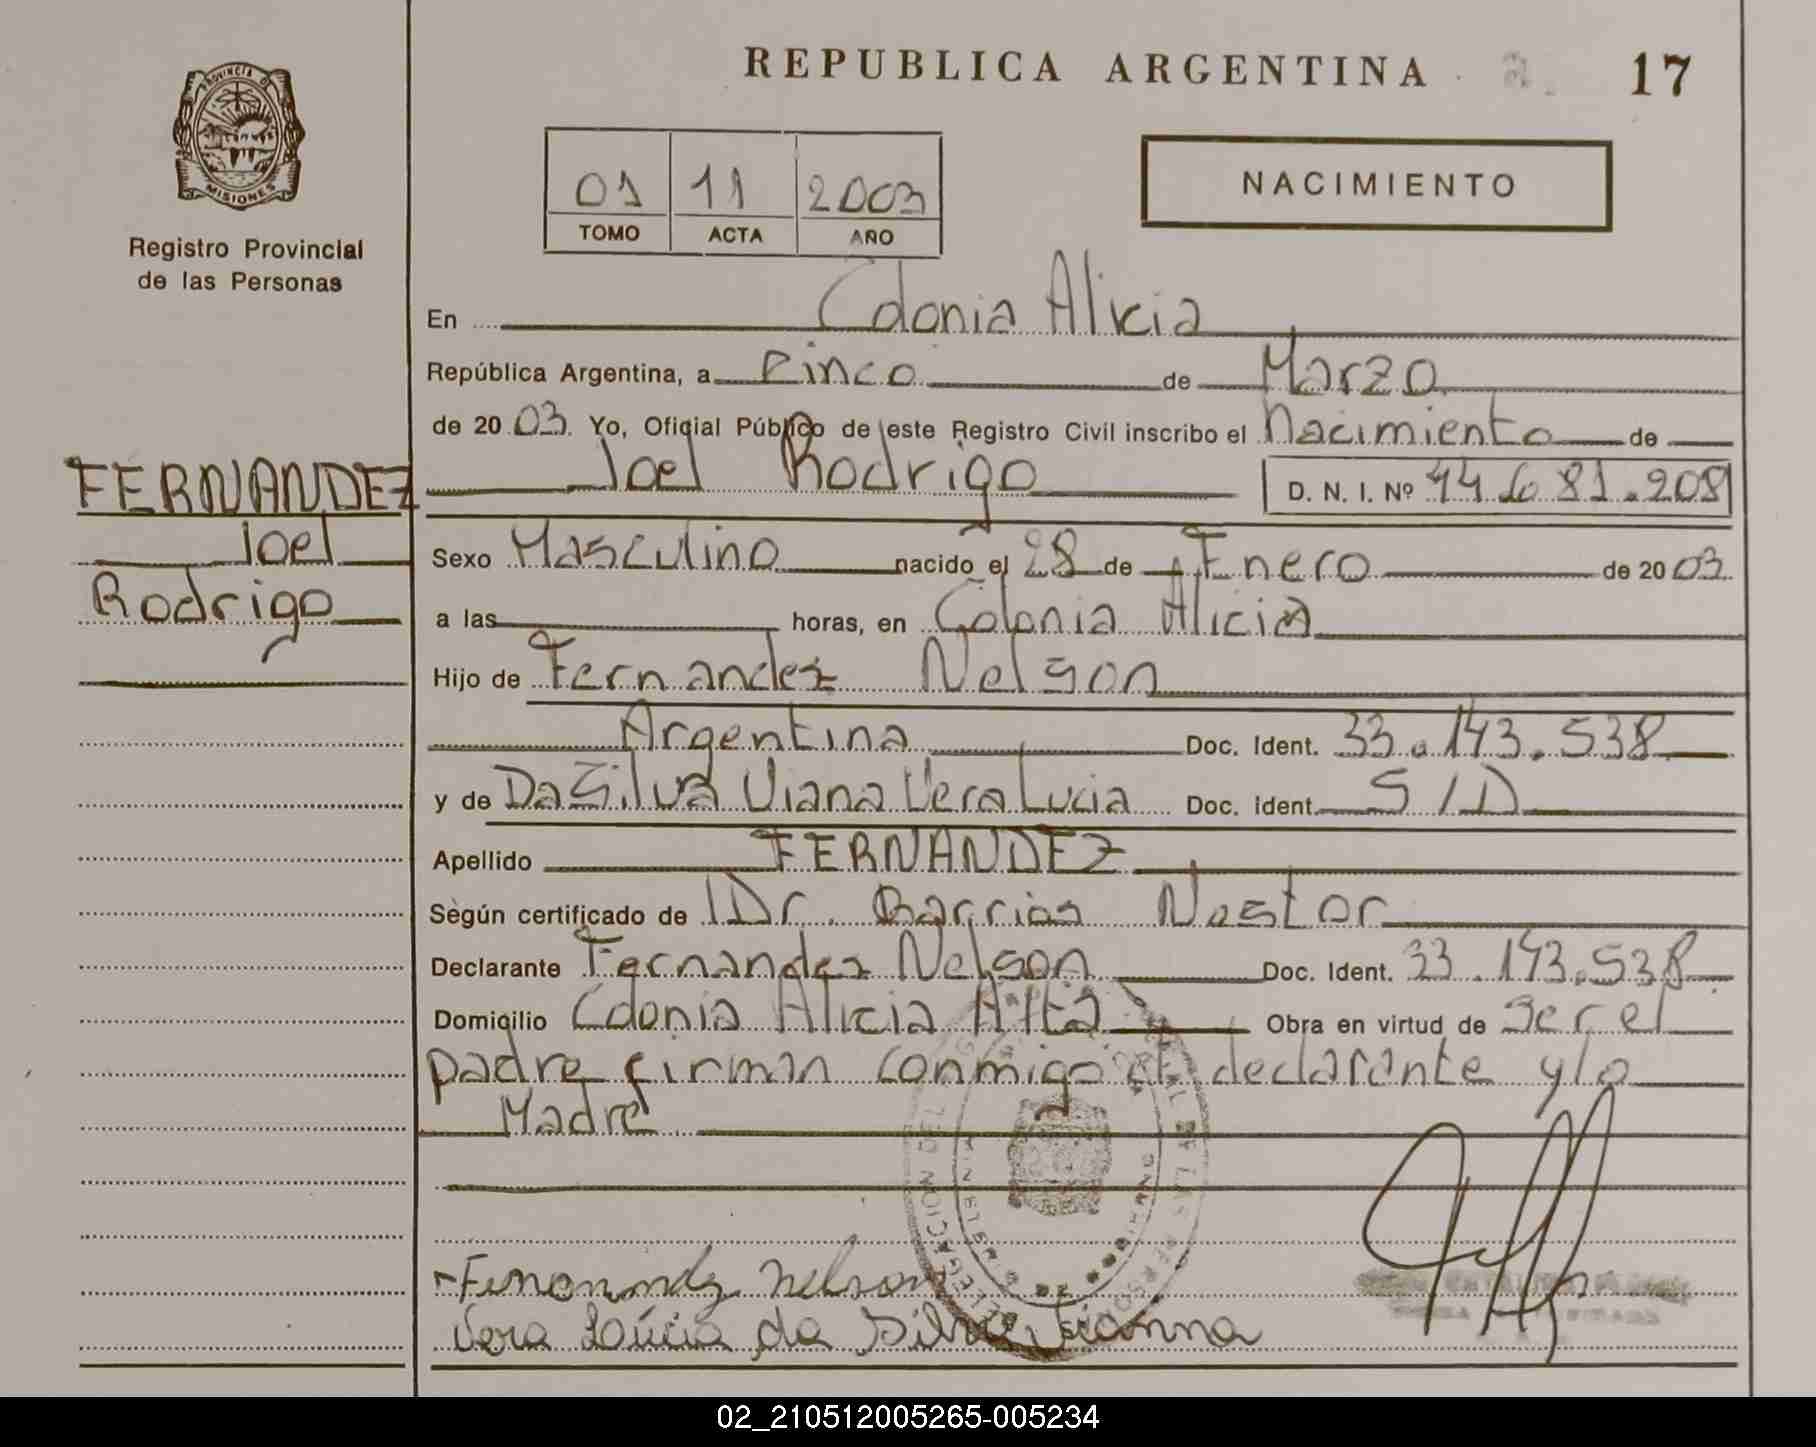 REPUBLICA ARGENTINA 17
PROVINCIA DE
MISIONES
Registro Provincial
de las Personas
FERNANDEZ
Joel
Rodrigo
01 11 2003
TOMO ACTA AÑO
NACIMIENTO
En Colonia Alicia
República Argentina, a Cinco de Marzo
de 2003. Yo, Oficial Público de este Registro Civil inscribo el Nacimiento de
Joel Rodrigo D. N. I. Nº 44.681.208
Sexo Masculino nacido el 28 de Enero de 2003
a las horas, en Colonia Alicia
Hijo de Fernandez Nelson
Argentina Doc. Ident. 33.143.538
y de Da Silva Viana Vera Lucia Doc. Ident. S/D
Apellido FERNANDEZ
Según certificado de Dr. Barrios Nestor
Declarante Fernandez Nelson Doc. Ident. 33.143.538
Domicilio Colonia Alicia Alta Obra en virtud de ser el
padre firman conmigo el declarante y la
Madre
Fernandez Nelson
Vera Lúcia da Silva Vianna
02_210512005265-005234